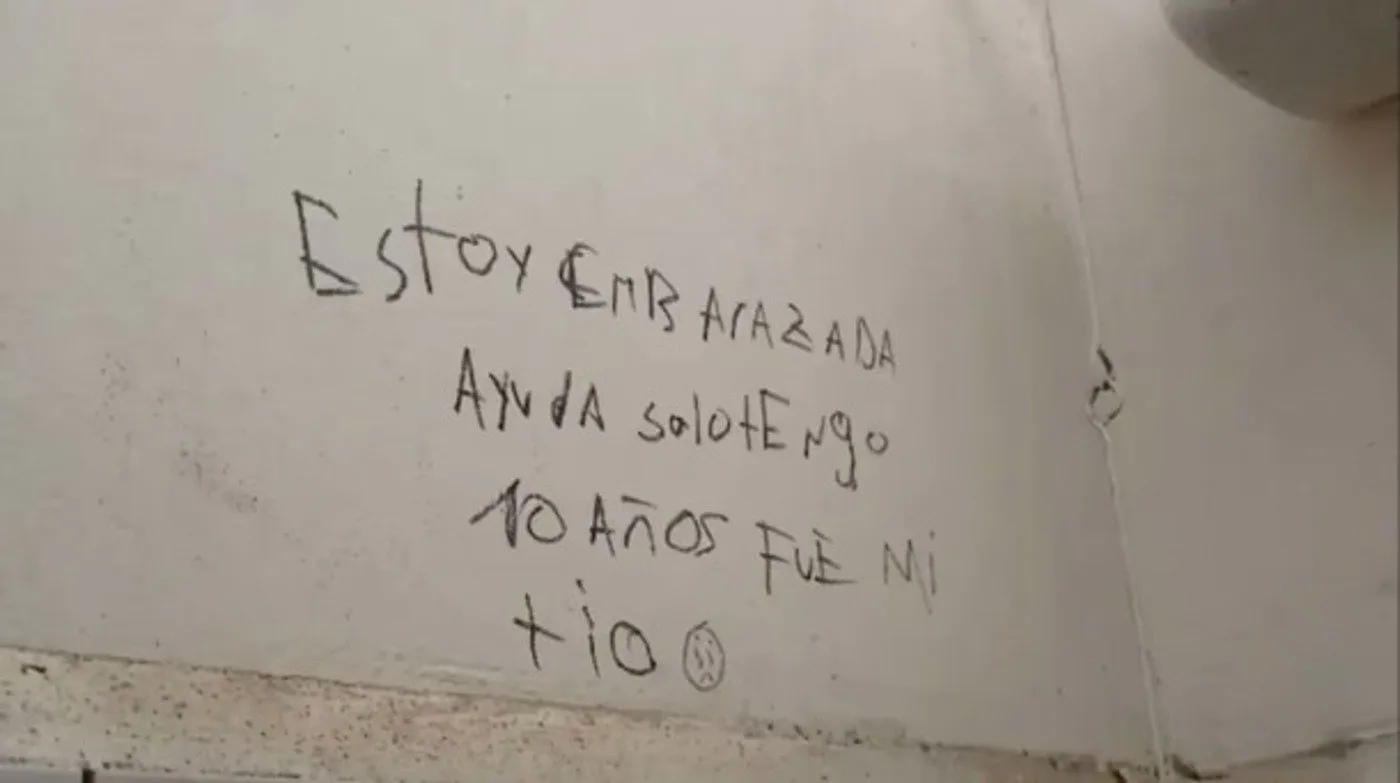 Estoy EMBArAZADA
AyudA solotEngo
10 AñOS FUE Mi
tio